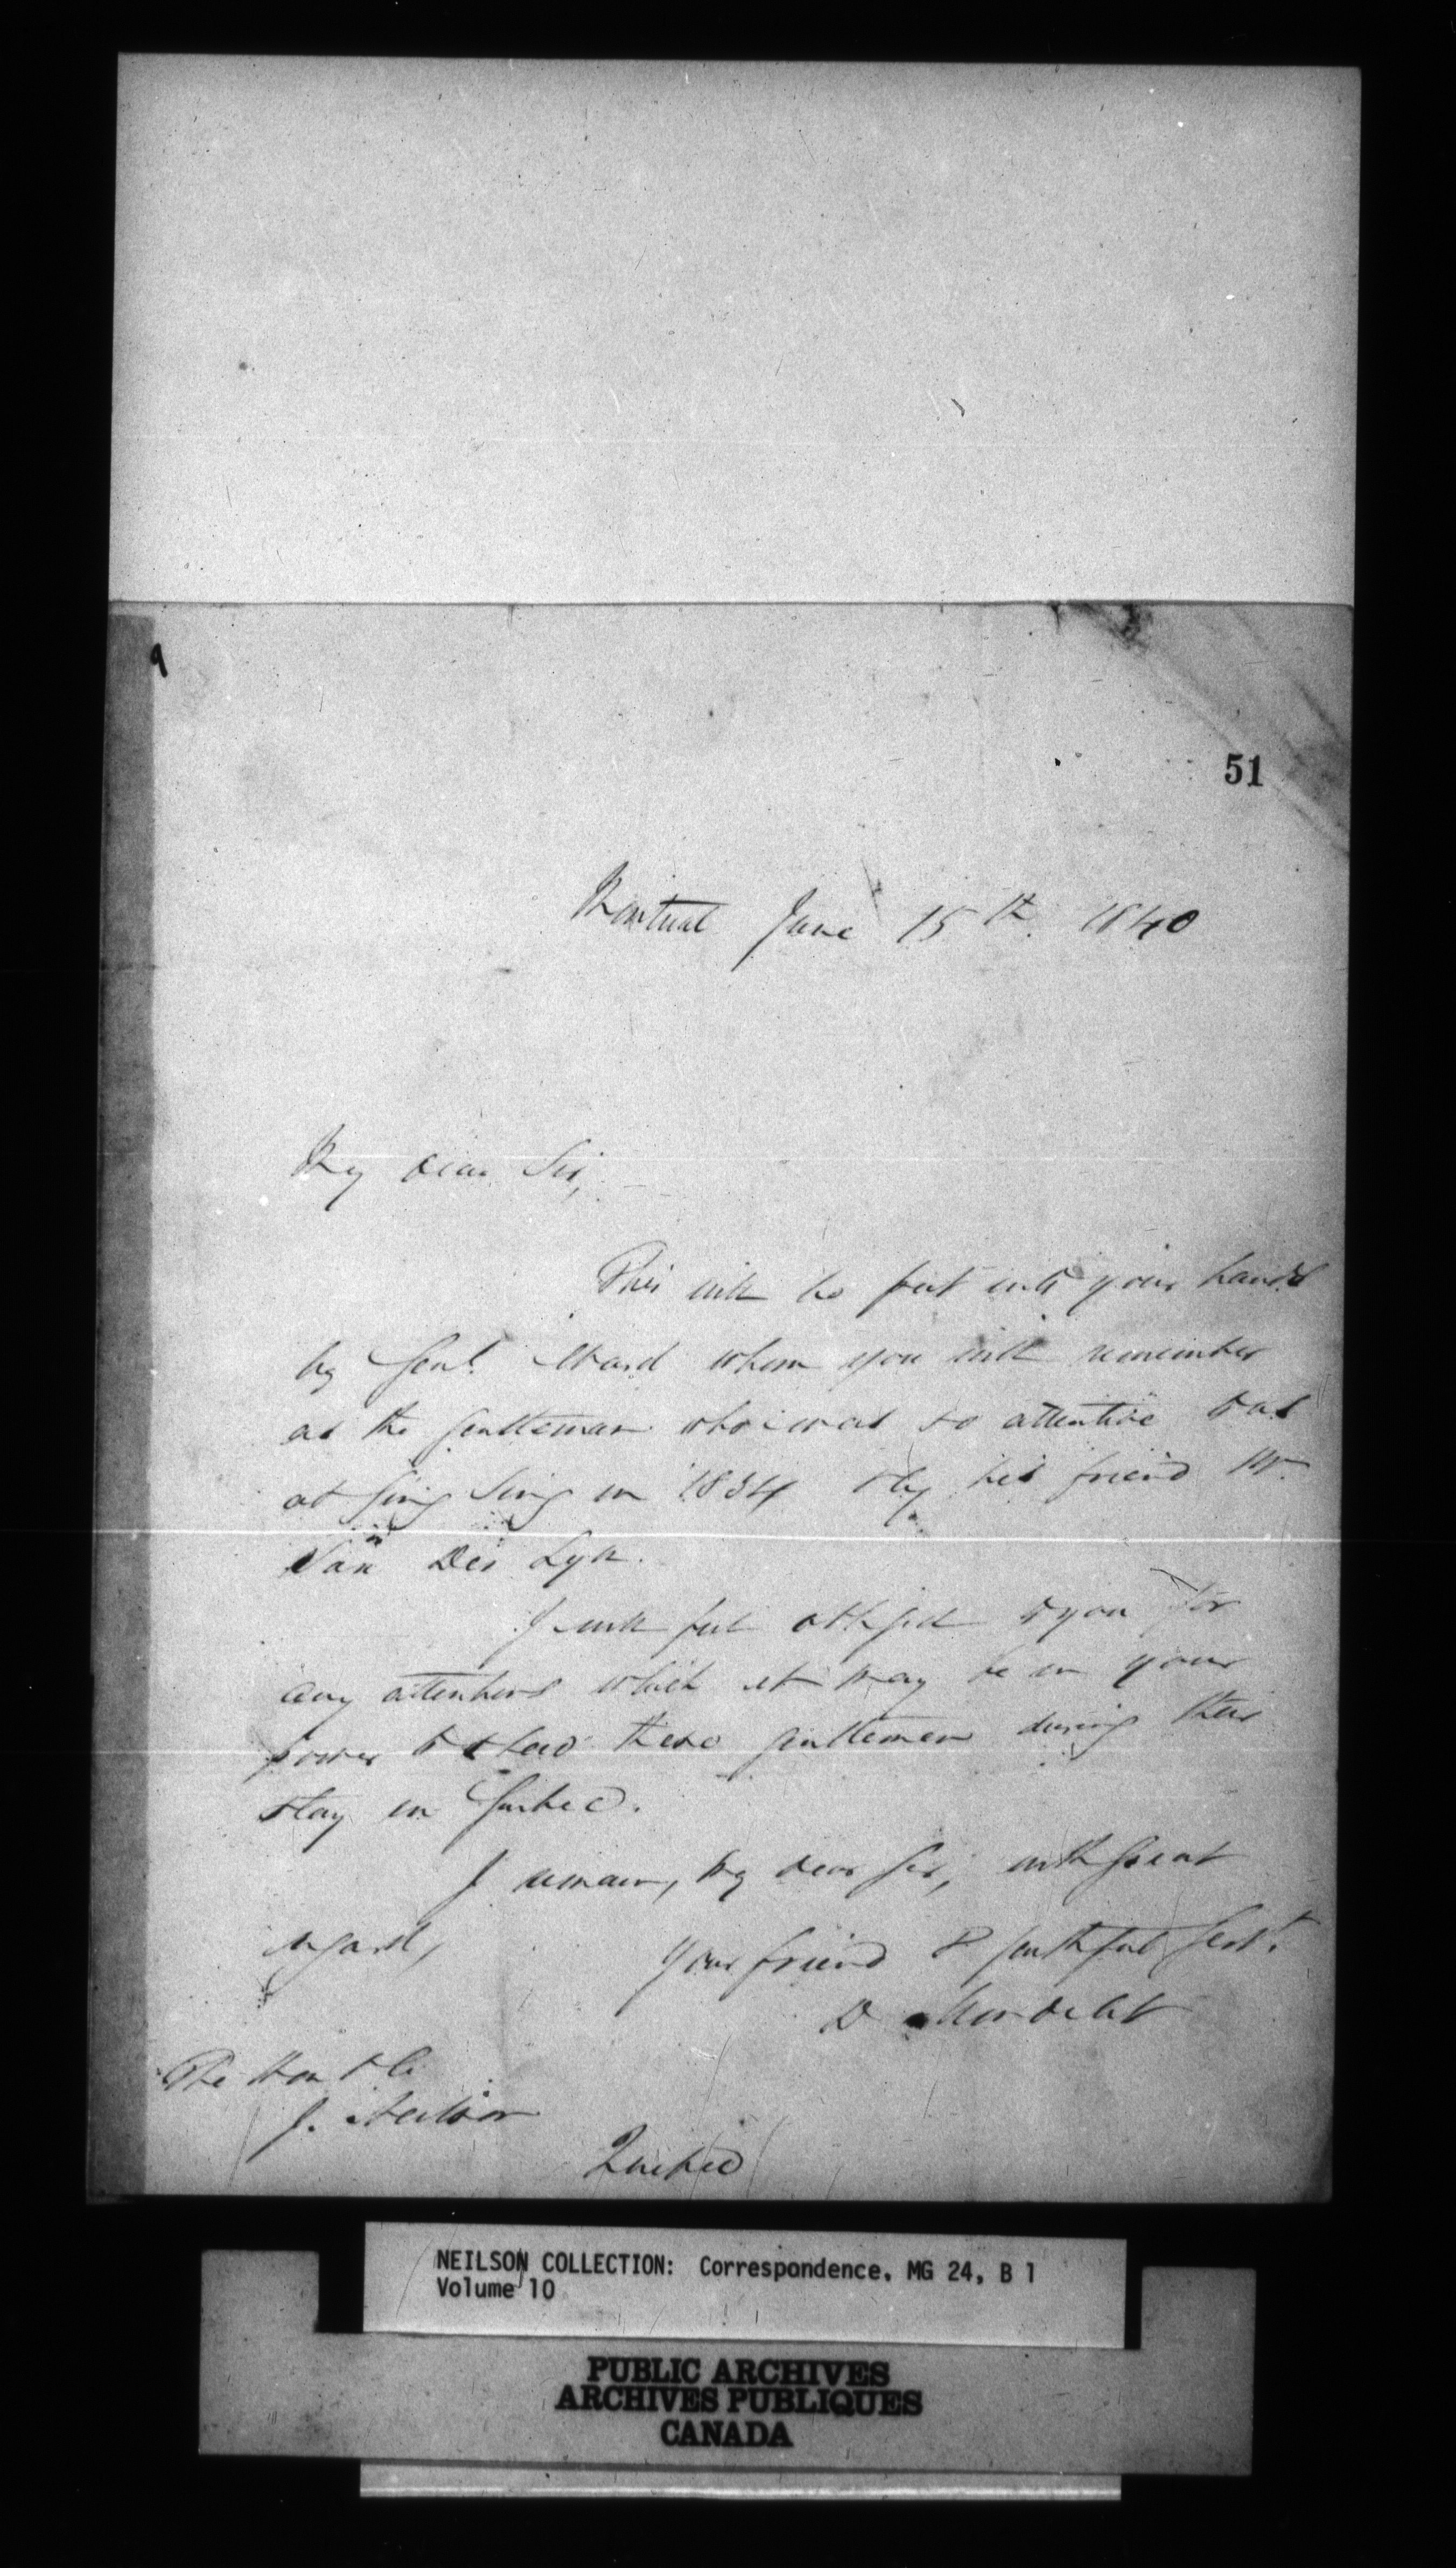 51
Montreal June 15th. 1840
My dear Sir,
This will be put into your hands
by Genl. Ward whom you will remember
as the gentleman who was so attentive to us
at Sing Sing in 1834 & by his friend Mr.
Van Der Lyn.
I will feel obliged to you for
any attentions which it may be in your
power to shew these gentlemen during their
stay in Quebec.
I remain, My dear Sir, with great
regard,
Your friend & faithful Servt.
D Mondelet
The Honble
J. Neilson
Quebec
NEILSON COLLECTION: Correspondence, MG 24, B 1
Volume 10
PUBLIC ARCHIVES
ARCHIVES PUBLIQUES
CANADA